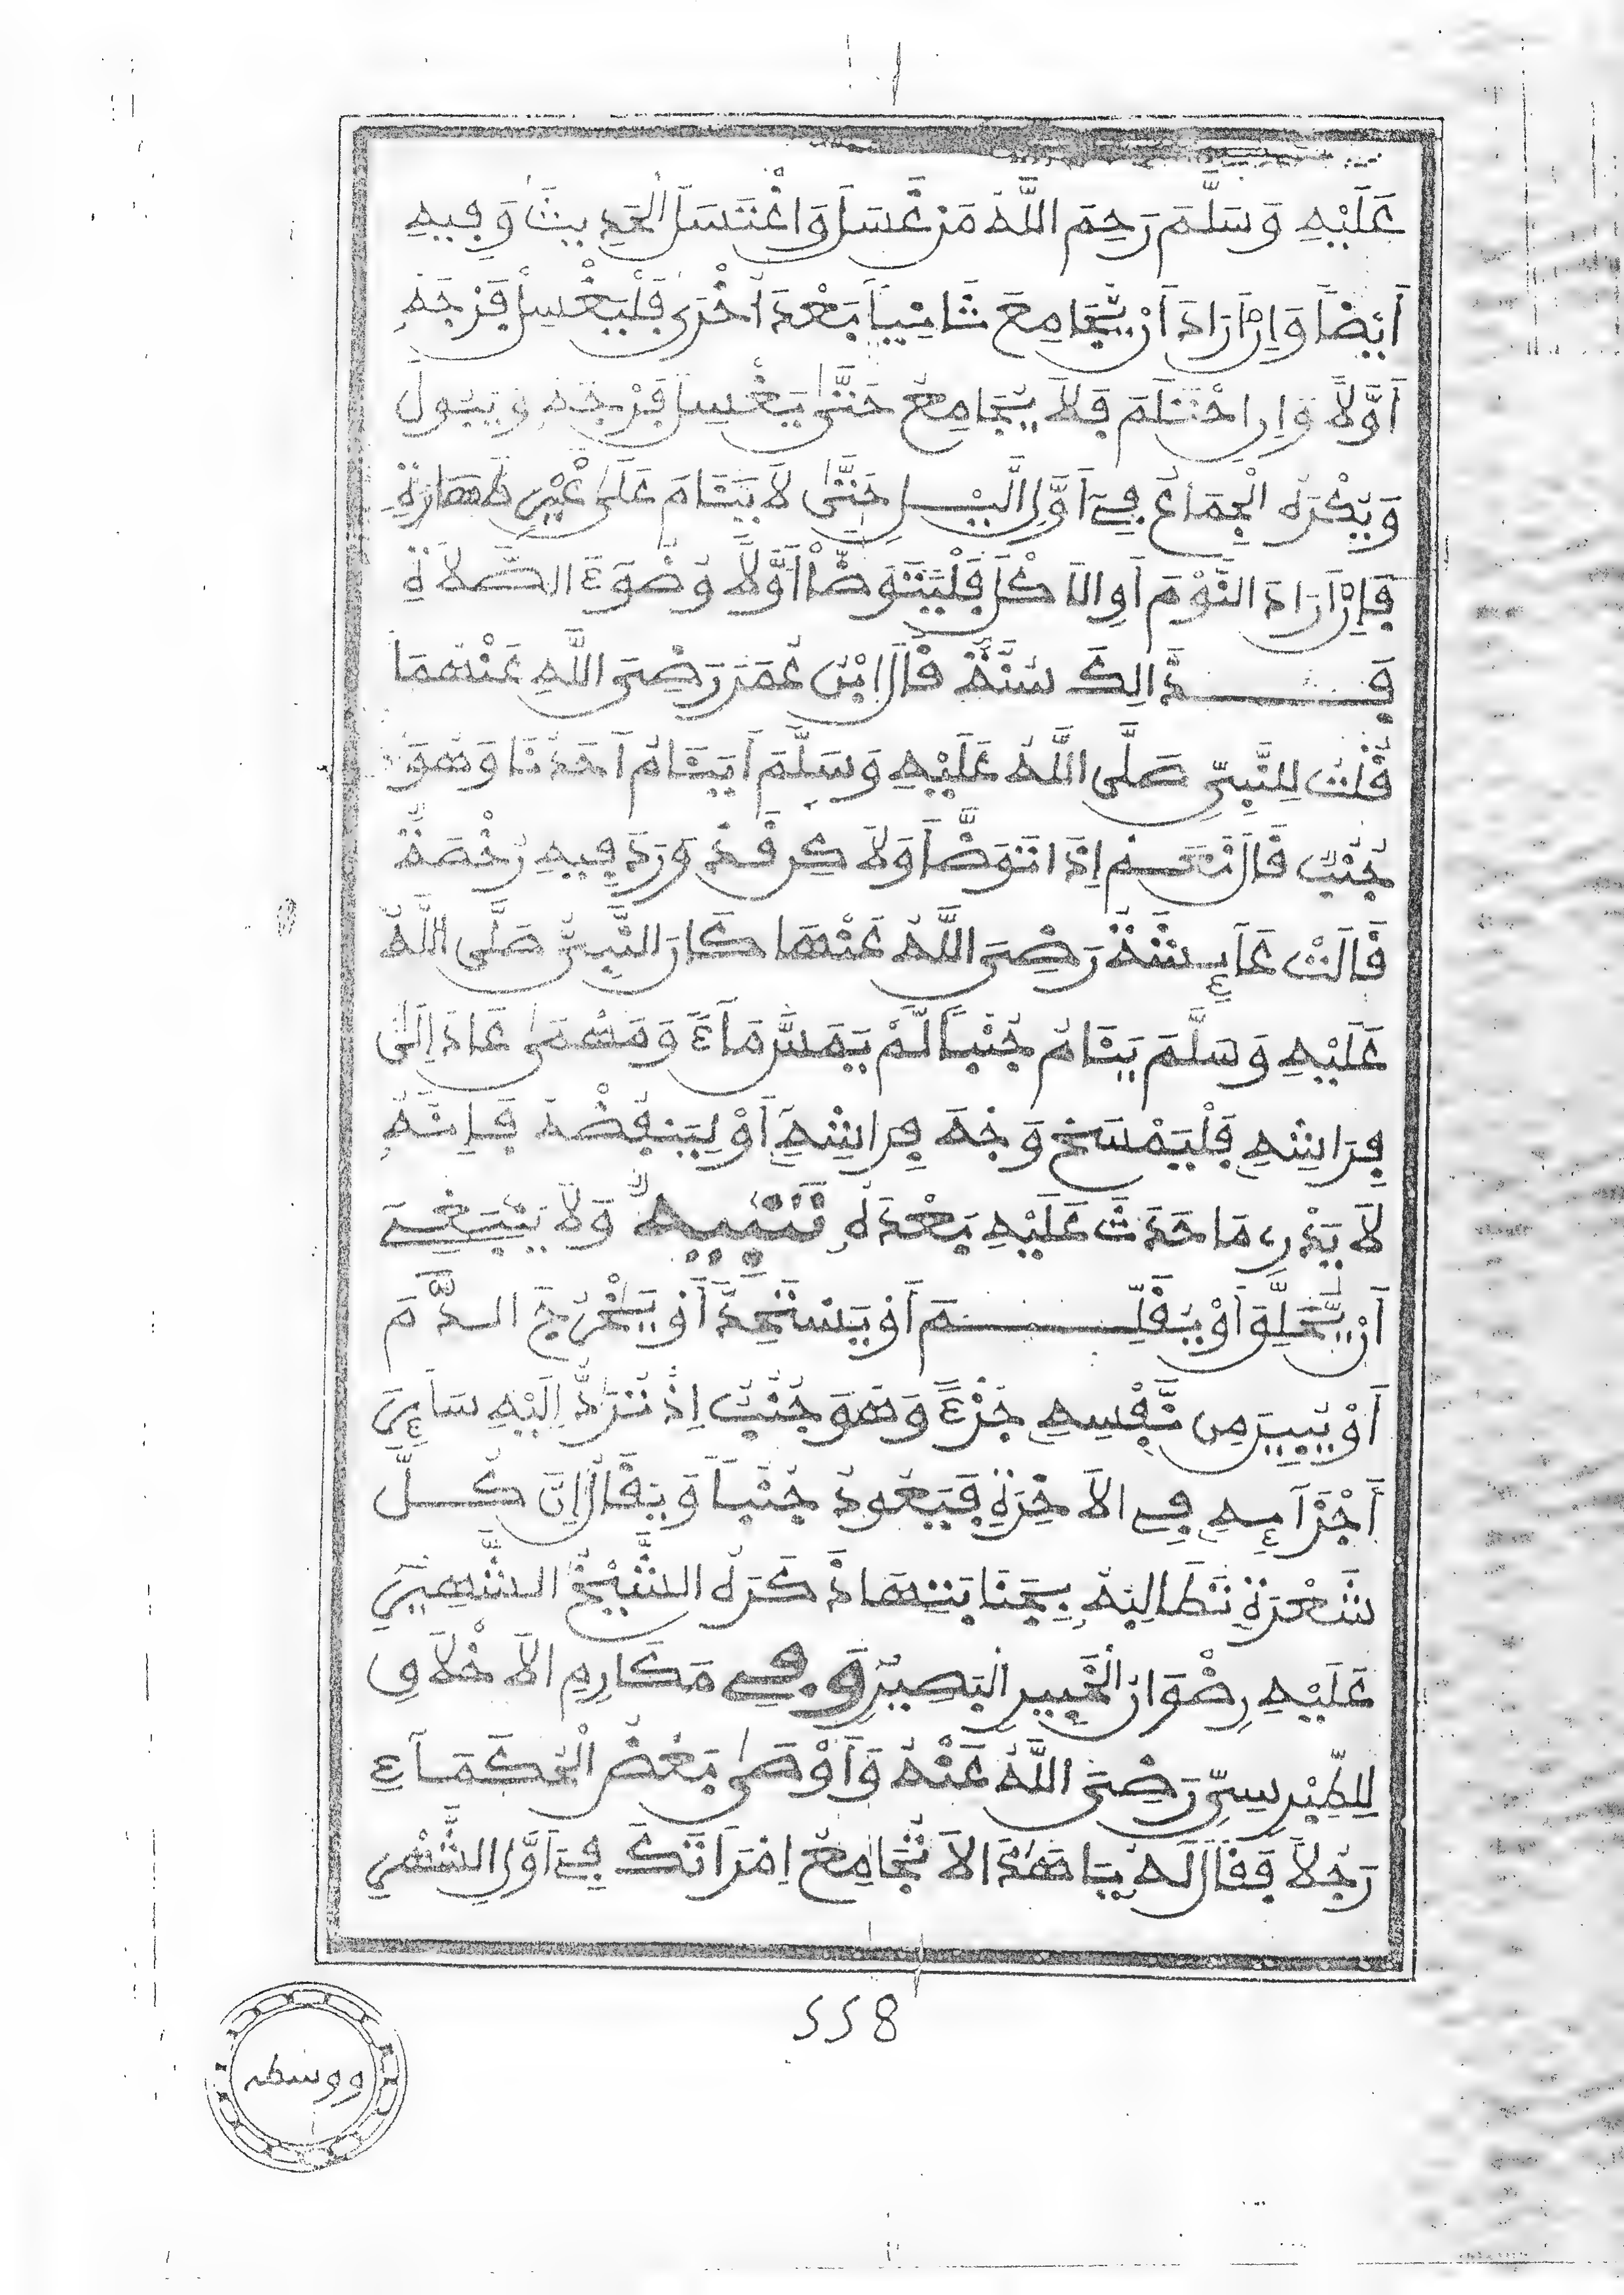 عَلَيْهِ وَسَلَّمَ رَحِمَ اللَّهُ مَنْ غَسَلَ وَاغْتَسَلَ الْحَدِيثَ وَفِيهِ
أَيْضًا وَإِنْ أَرَادَ أَنْ يُّجَامِعَ ثَانِيًا بَعْدَ أُخْرَى فَلْيَغْسِلْ فَرْجَهُ
أَوَّلًا وَإِنِ احْتَلَمَ فَلَا يُجَامِعُ حَتَّى يَغْسِلَ فَرْجَهُ وَيَبُولَ
وَيُكْرَهُ الْجِمَاعُ فِي أَوَّلِ الَّيْلِ حَتَّى لَا يَنَامَ عَلَى غَيْرِ طَهَارَةٍ
فَإِنْ أَرَادَ النَّوْمَ أَوِ الْأَكْلَ فَلْيَتَوَضَّأْ أَوَّلًا وُضُوءَ الصَّلَاةِ
فَذَالِكَ سُنَّةٌ قَالَ ابْنُ عُمَرَ رَضِيَ اللَّهُ عَنْهُمَا
قُلْتُ لِلنَّبِيِّ صَلَّى اللَّهُ عَلَيْهِ وَسَلَّمَ أَيَنَامُ أَحَدُنَا وَهُوَ
جُنُبٌ قَالَ نَعَمْ إِذَا تَوَضَّأَ وَلَاكِن قَدْ وَرَدَ فِيهِ رُخْصَةٌ
قَالَتْ عَائِشَةُ رَضِيَ اللَّهُ عَنْهَا كَانَ النَّبِيُّ صَلَّى اللَّهُ
عَلَيْهِ وَسَلَّمَ يَنَامُ جُنُبًا لَّمْ يَمَسَّ مَاءً وَمَهْمَى عَادَ إِلَى
فِرَاشِهِ فَلْيَمْسَحْ وَجْهَ فِرَاشِهِ أَوْ لِيَنفُضْهُ فَإِنَّهُ
لَا يَدْرِى مَا حَدَثَ عَلَيْهِ بَعْدَهُ تَنْبِيهٌ وَلَا يَنْبَغِي
أَنْ يَّحْلِقَ أَوْ يُقَلِّمَ أَوْ يَسْتَحِدَّ أَوْ يُخْرِجَ الدَّمَ
أَوْ يُبِينَ مِن نَّفْسِهِ جُزْءًا وَهُوَ جُنُبٌ إِذْ تُرَدُّ إِلَيْهِ سَائِرُ
أَجْزَائِهِ فِي الْآخِرَةِ فَيَعُودُ جُنُبًا وَيُقَالُ إِنَّ كُلَّ
شَعْرَةٍ تُطَالِبُهُ بِجَنَابَتِهَا ذَكَرَهُ الشَّيْخُ الشَّهِيرُ
عَلَيْهِ رِضْوَانُ الْخَبِيرِ الْبَصِيرِ وَفِي مَكَارِمِ الْأَخْلَاقِ
لِلطِّبْرِسِيِّ رَضِيَ اللَّهُ عَنْهُ وَأَوْصَى بَعْضُ الْحُكَمَاءِ
رَجُلًا فَقَالَ لَهُ يَا هَذَا لَا تُجَامِعْ امْرَأَتَكَ فِي أَوَّلِ الشَّهْرِ
558
ووسطه